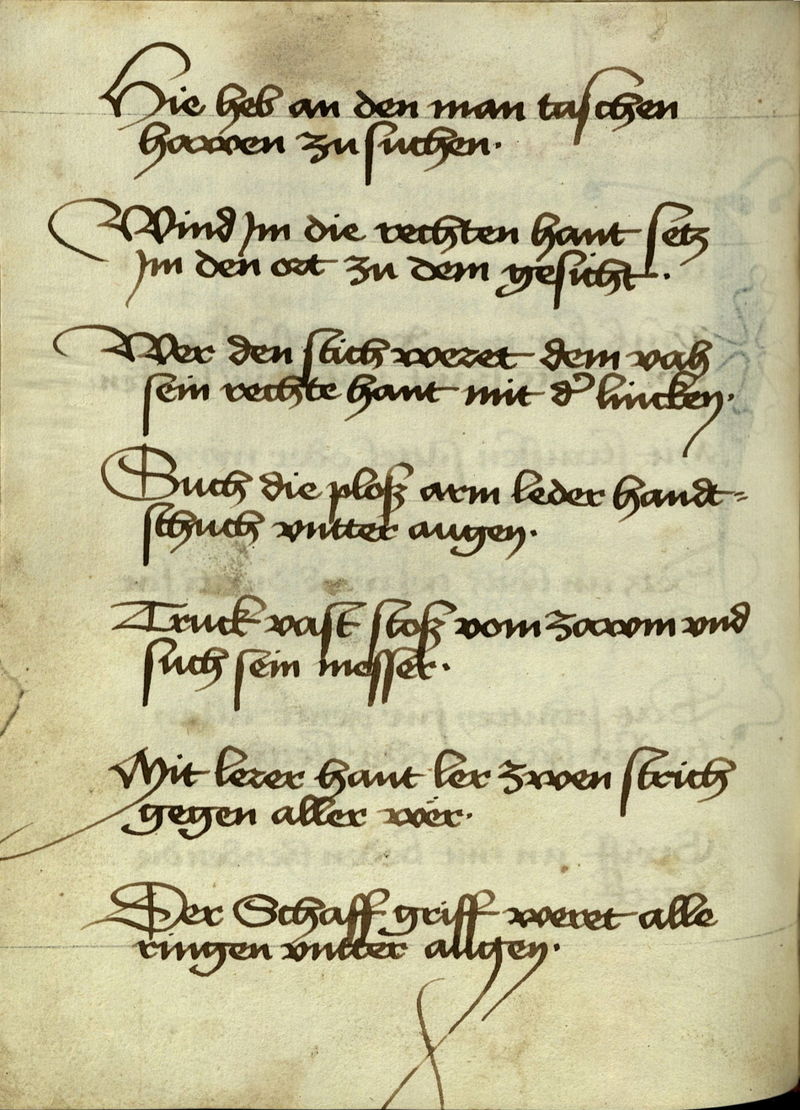 Hie heb an den man taschen
hawen zu suchen.
Wind Jm die rechten hant setz
Jm den ort zu dem gesicht.
Wer den stich weret dem vah
sein rechte hant mit d' lincken.
Such die ploß arm leder handt-
schuch vntter augen.
Truck vast stoß vom zawm vnd
such sein messer.
Mit lerer hant ler zwen strich
gegen aller wer.
Der Schaff griff weret alle
ringen vntter augen.